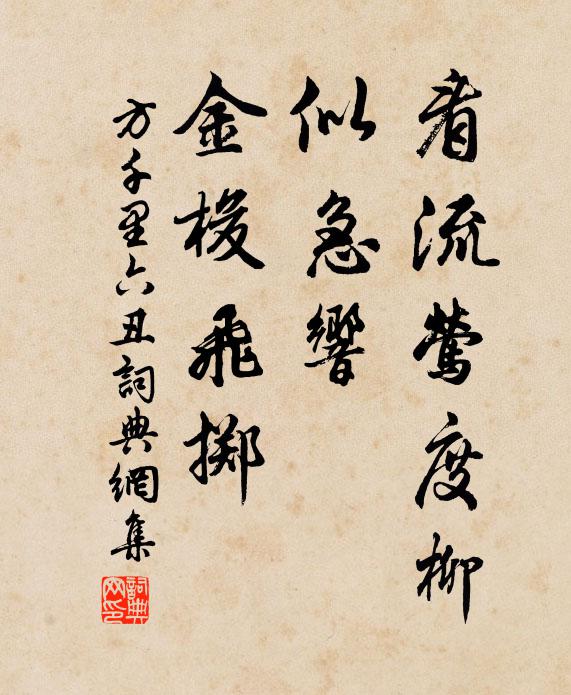 看流莺度柳
似急響
金梭飛掷
方千里六丑詞典網集
詞典网印